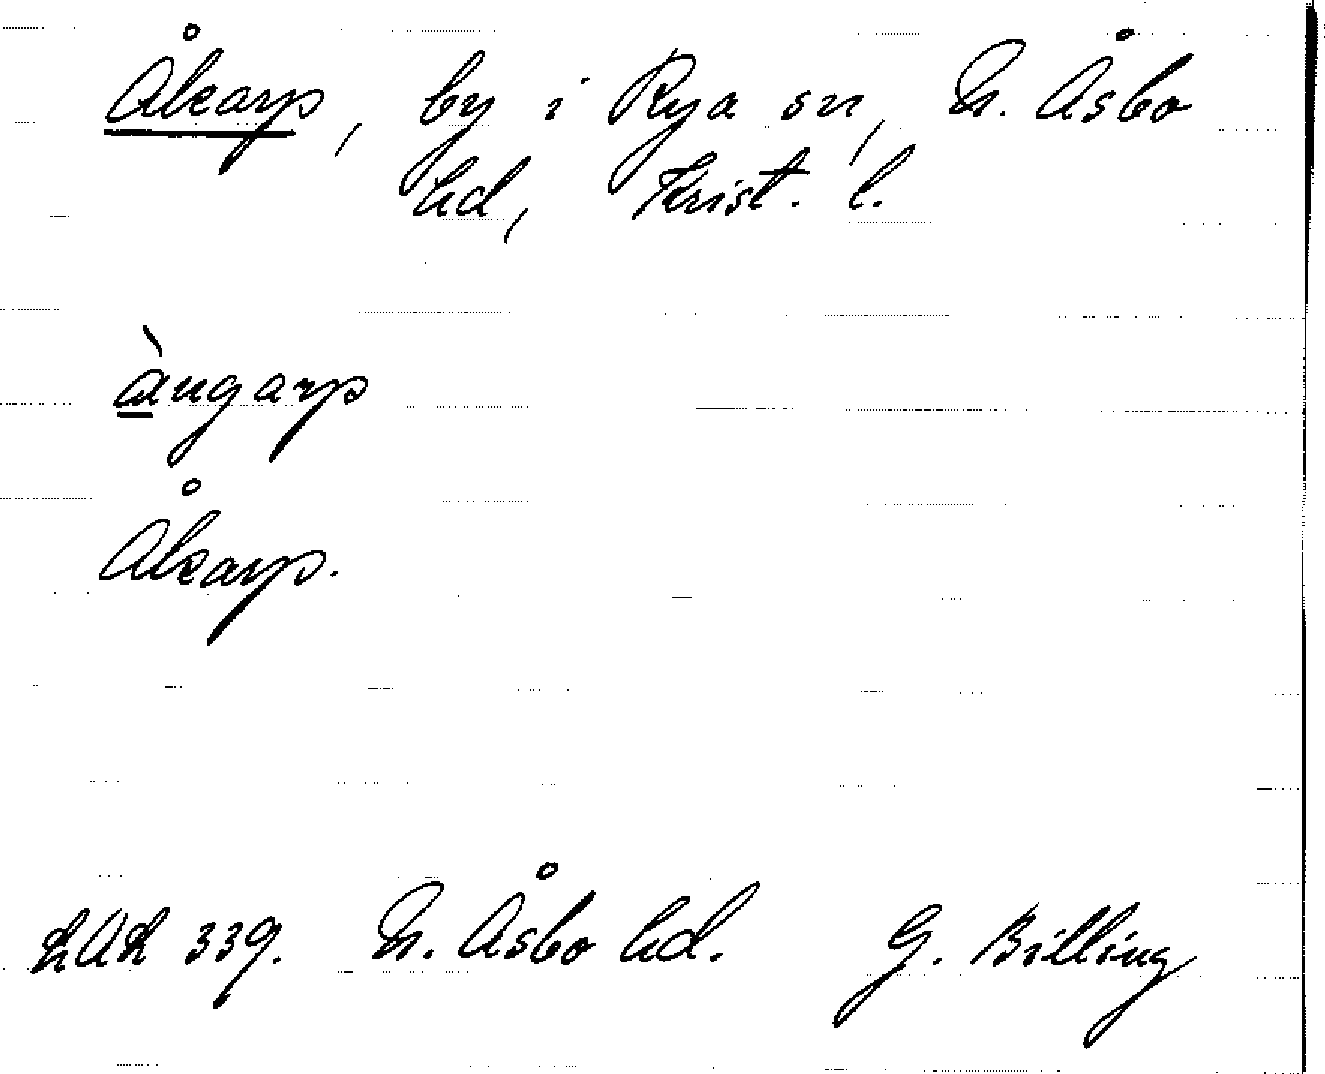 Åkarp, by i Rya sn, N. Åsbo
hd, Krist. l.
àugarp
Åkarp.
LAL 339. N. Åsbo hd. G. Billing